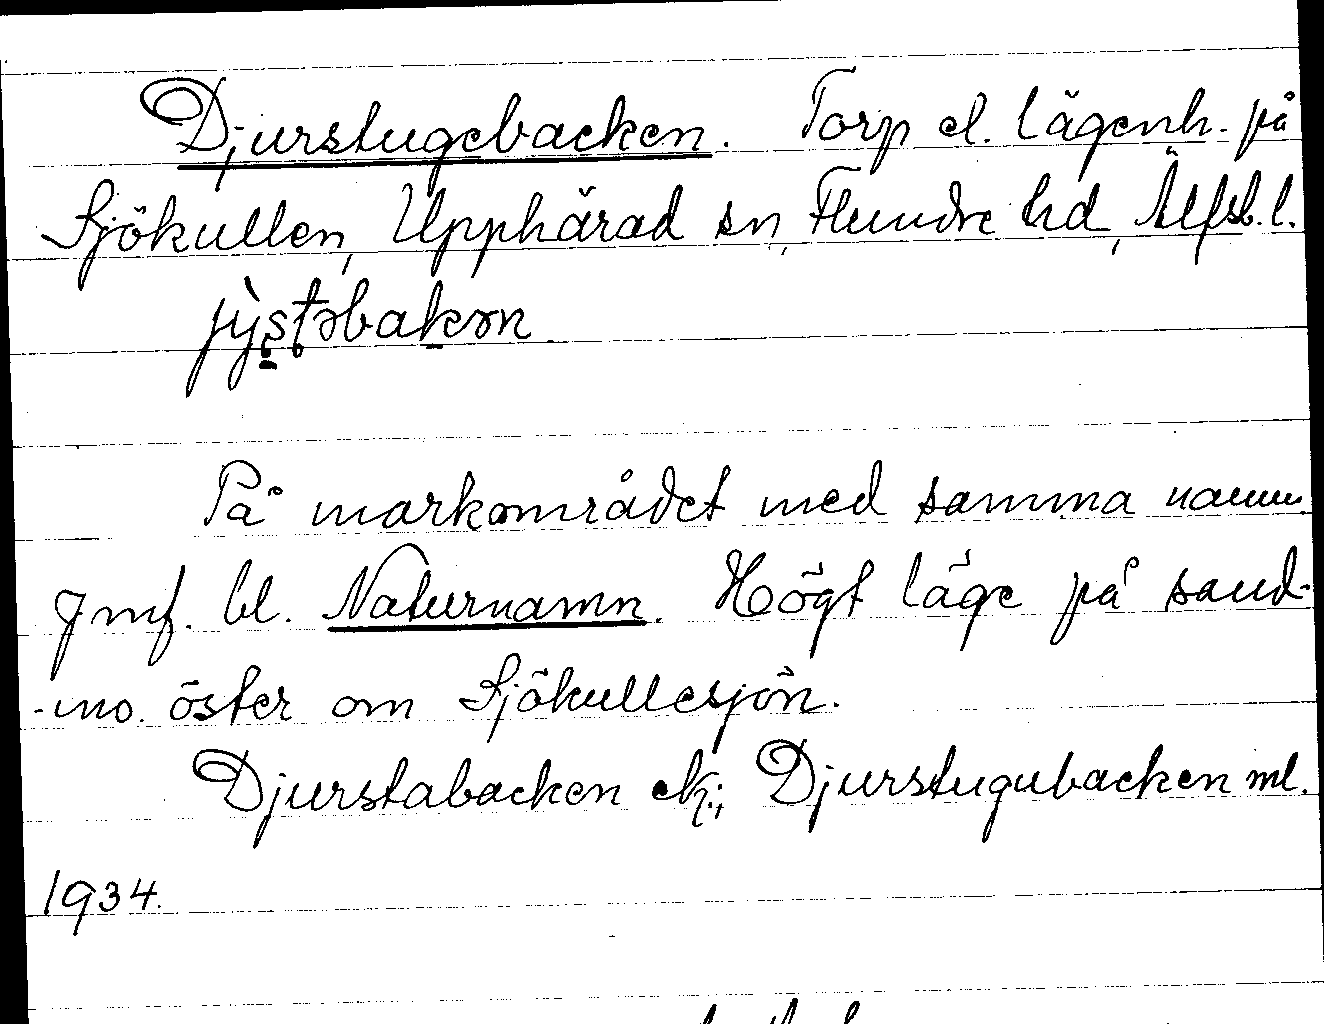 Djurstugebacken. Torp el. lägenh. på
Sjökullen, Upphärad sn, Flundre hd, Älfsb. l.
På markområdet med samma namn.
Jmf. bl. Naturnamn. Högt läge på sand-
-mo öster om Sjökullesjön.
Djurstabacken ek.; Djurstugubacken ml.
1934.